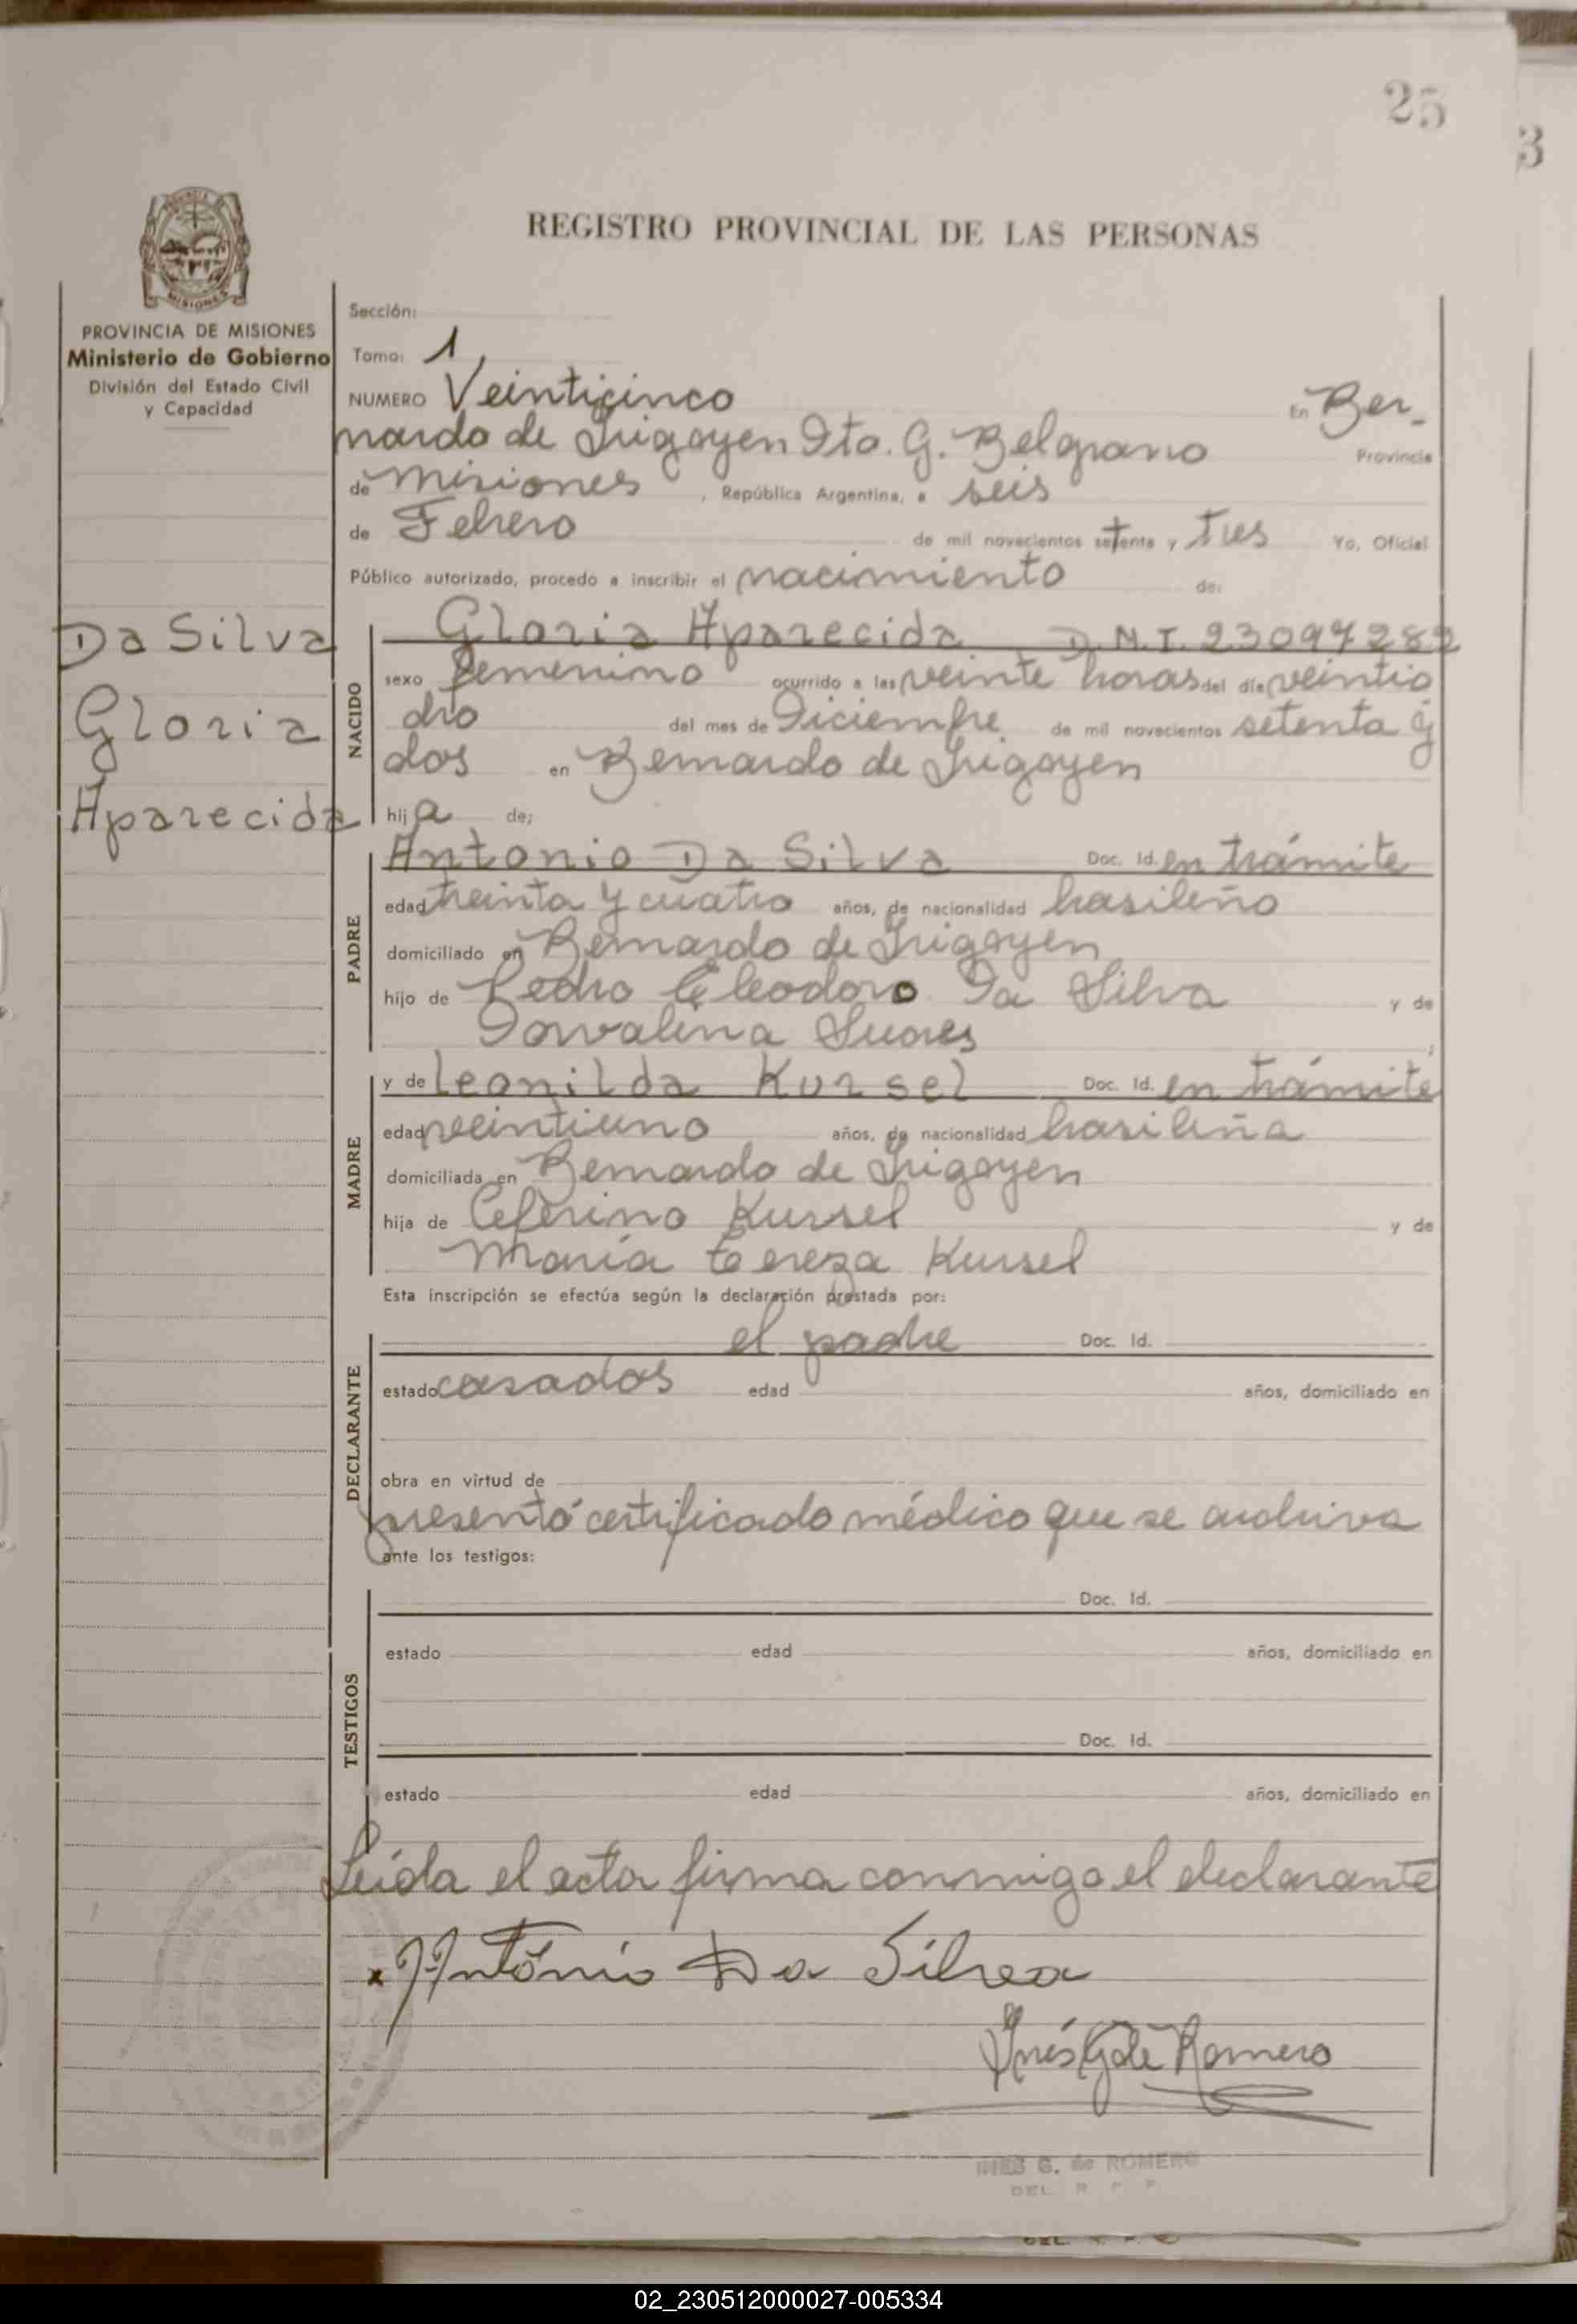 25
3
REGISTRO PROVINCIAL DE LAS PERSONAS
PROVINCIA DE MISIONES
Ministerio de Gobierno
División del Estado Civil
y Capacidad
Sección:
Tomo: 1
NUMERO Veinticinco En Ber-
nardo de Irigoyen Dto. G. Belgrano Provincia
de Misiones, República Argentina, a seis
de Febrero de mil novecientos setenta y tres Yo, Oficial
Público autorizado, procedo a inscribir el nacimiento de:
Da Silva
Gloria
Aparecida
NACIDO
Gloria Aparecida D.N.I. 23097282
sexo femenino ocurrido a las veinte horas del día veintio
cho del mes de Diciembre de mil novecientos setenta y
dos en Bernardo de Irigoyen
hija de;
PADRE
Antonio Da Silva Doc. Id. en trámite
edad treinta y cuatro años, de nacionalidad brasileño
domiciliado en Bernardo de Irigoyen
hijo de Pedro Cleodoro Da Silva y de
Dorvalina Suares;
MADRE
y de Leonilda Kursel Doc. Id. en trámite
edad veintiuno años, de nacionalidad brasileña
domiciliada en Bernardo de Irigoyen
hija de Ceferino Kursel y de
María tereza Kursel
Esta inscripción se efectúa según la declaración prestada por:
DECLARANTE
el padre Doc. Id.
estado casados edad años, domiciliado en
obra en virtud de
presentó certificado médico que se archiva
ante los testigos:
TESTIGOS
Doc. Id.
estado edad años, domiciliado en
Doc. Id.
estado edad años, domiciliado en
Leída el acta firma conmigo el declarante
x Antônio Da Silva
Inés G de Romero
INES G. de ROMERO
DEL. R P P
02_230512000027-005334